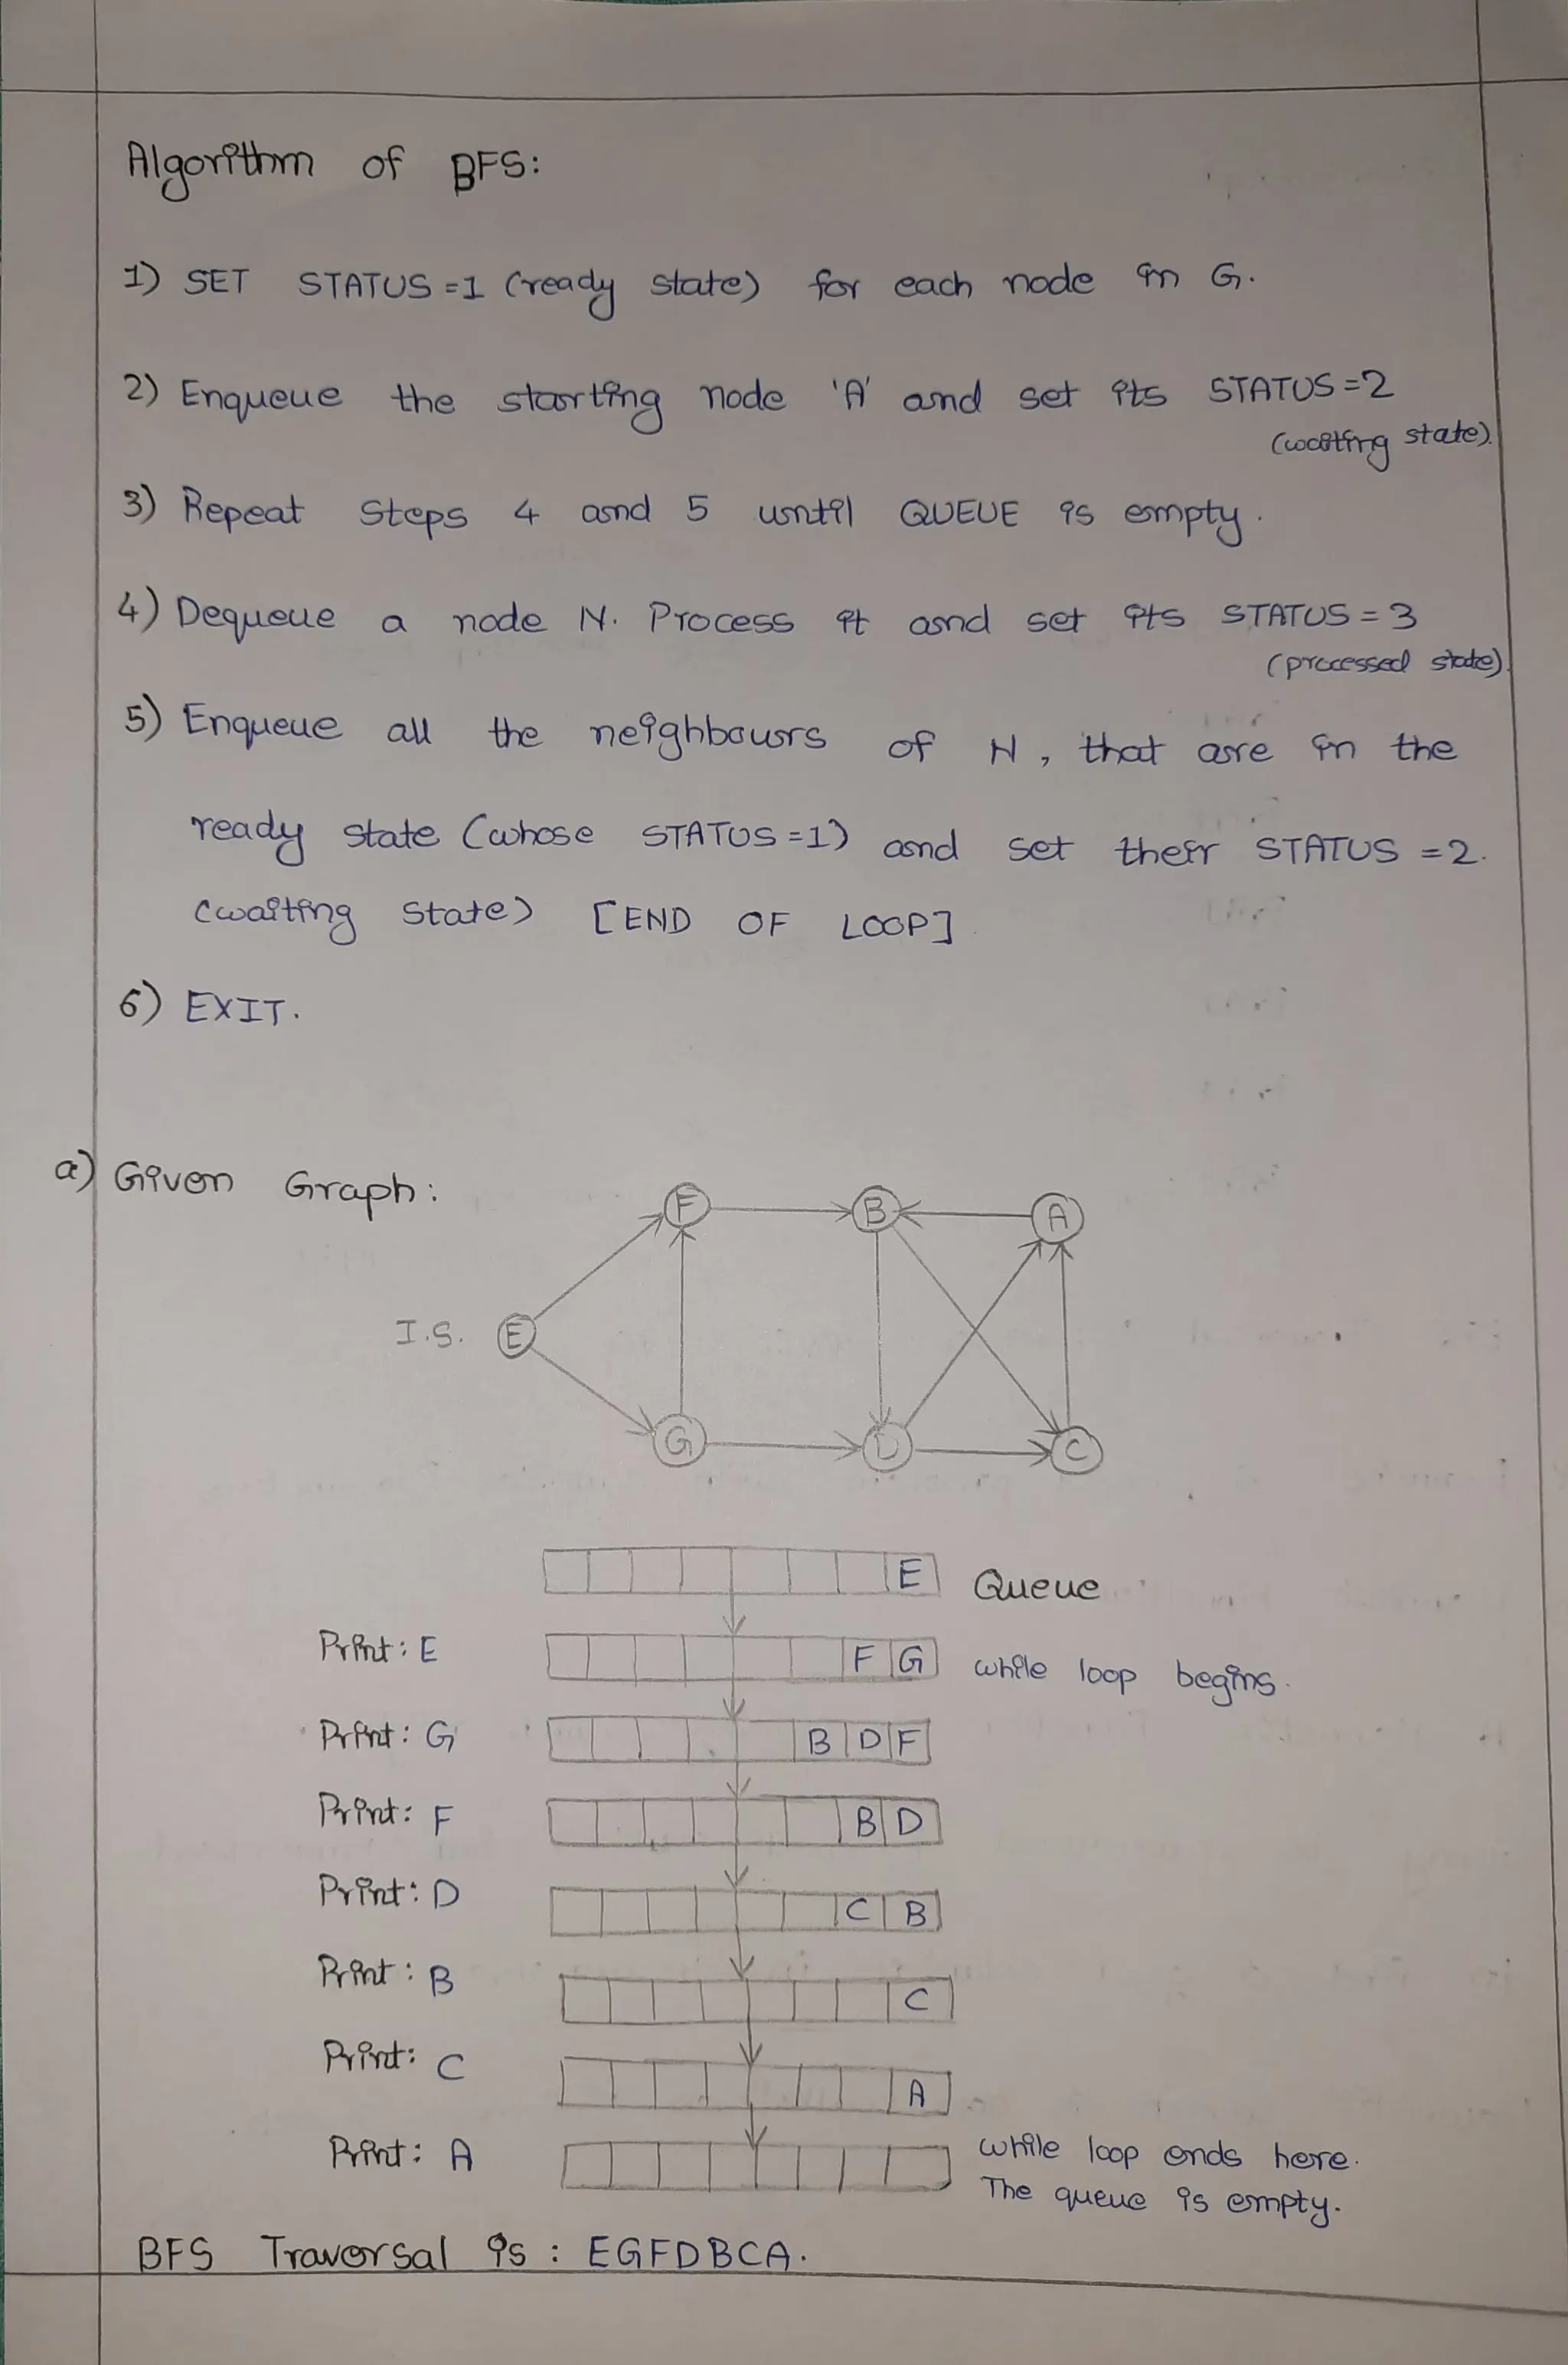 Algorithm of BFS:
1) SET STATUS=1 (ready state) for each node in G.
2) Enqueue the starting node 'A' and set its STATUS=2
(waiting state).
3) Repeat Steps 4 and 5 until QUEUE is empty.
4) Dequeue a node N. Process it and set its STATUS=3
(processed state).
5) Enqueue all the neighbours of N, that are in the
ready state (whose STATUS=1) and set their STATUS=2.
(waiting state) [END OF LOOP]
6) EXIT.
a) Given Graph:
F B A
I.S. E
G D C
E Queue
Print: E F G while loop begins.
Print: G B D F
Print: F B D
Print: D C B
Print: B C
Print: C A
Print: A while loop ends here.
The queue is empty.
BFS Traversal is: EGFDBCA.